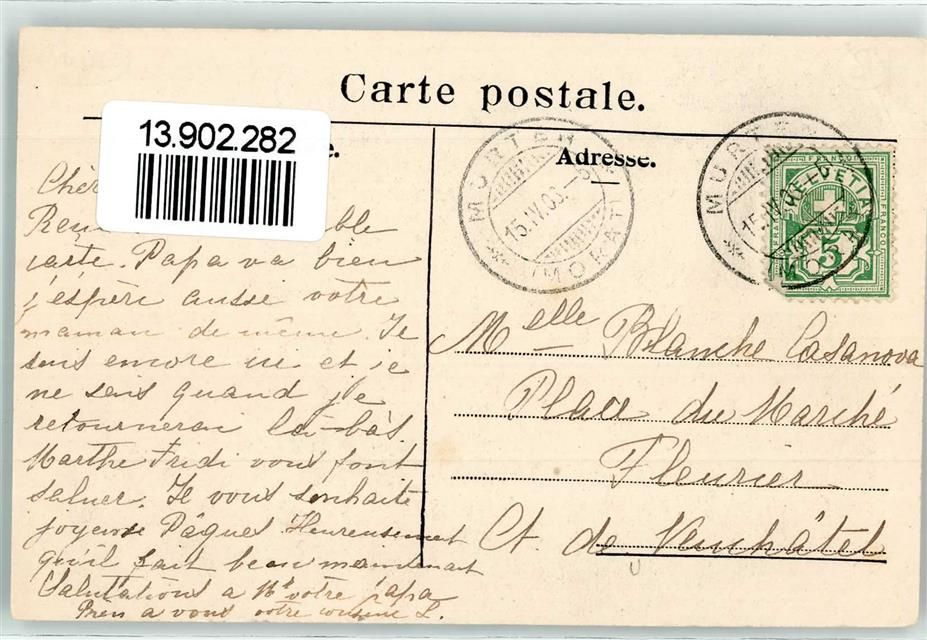 Carte postale.
13.902.282
Adresse.
MURTEN
15.IV.06.
(MORAT)
MURTEN
15.IV.
HELVETIA
FRANCO
FRANCO
5
Chèr
Rem ble
carte. Papa va bien
j'espère ausse votre
maman de même. Je
suis encore ici et je
ne sais quand je
retournerai là-bàs.
Marthe Fridi vous font
saluer. Je vous souhaite
joyeuse Pâques Heureusement
qu'il fait beau maintenant
Salutations a Mr votre papa
Bien a vous votre cousine L.
Melle Blanche Casanova
Place du Marché
Fleurier
Ct. de Neuchâtel